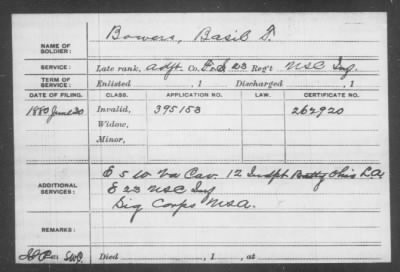 Bowers, Basil T.
NAME OF
SOLDIER:
SERVICE:
Late rank, Adjt. Co. F&S 23 Reg't USC Inf.
TERM OF
SERVICE:
Enlisted , 1 Discharged , 1
DATE OF FILING. CLASS. APPLICATION NO. LAW. CERTIFICATE NO.
1880 June 30 Invalid, 395153 262920
Widow,
Minor,
ADDITIONAL
SERVICES:
E 5 W Va Cav. 12 Indpt Batty Ohio L.A.
E 23 USC Inf
Sig Corps USA.
REMARKS:
Died , 1 , at